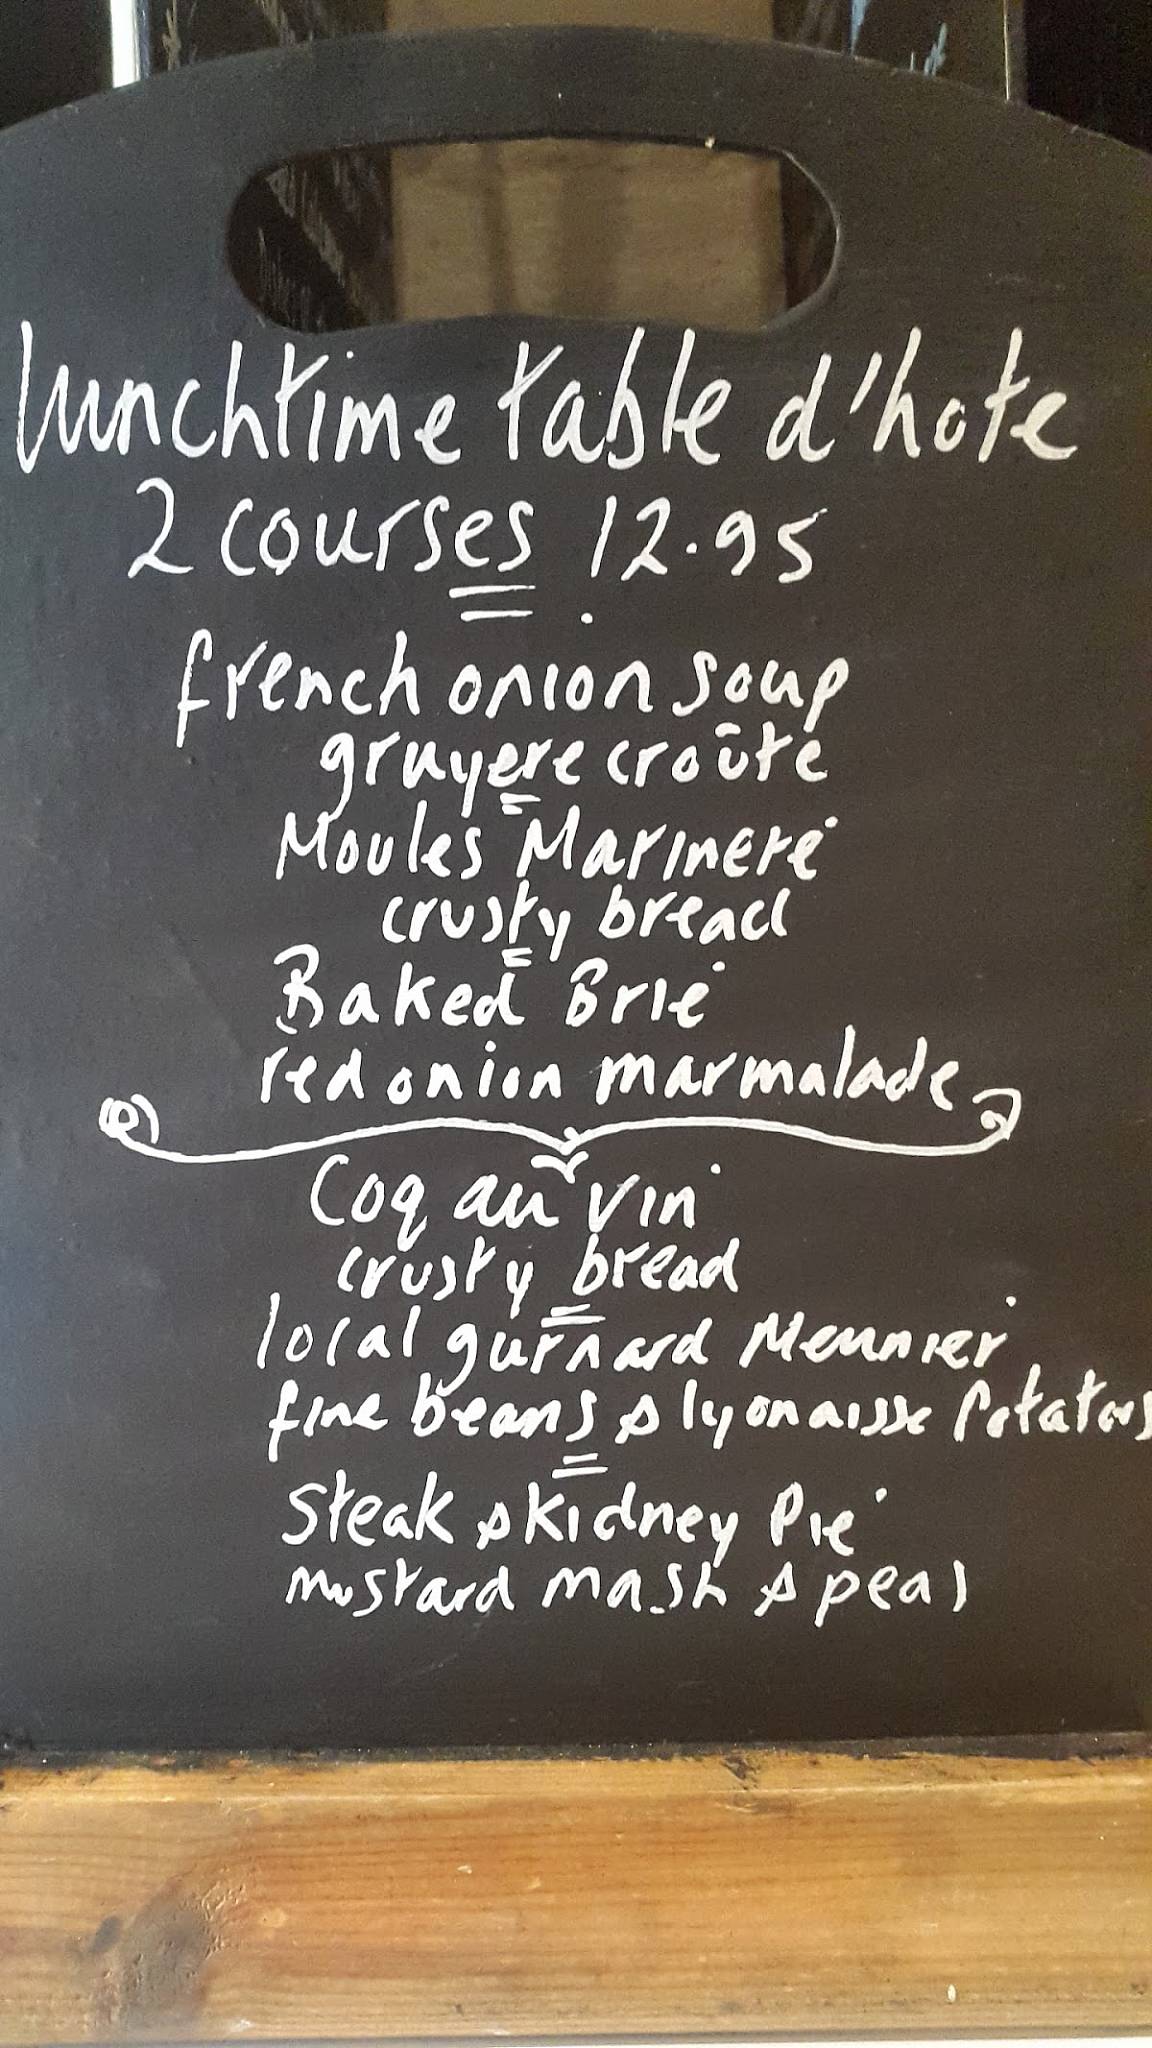 lunchtime table d'hote
2 courses 12.95
french onion soup
gruyere croûte
Moules Marinere
crusty bread
Baked Brie
red onion marmalade
Coq au vin
crusty bread
local gurnard Meunier
fine beans & lyonaisse Potatoes
Steak & kidney Pie
mustard mash & peas